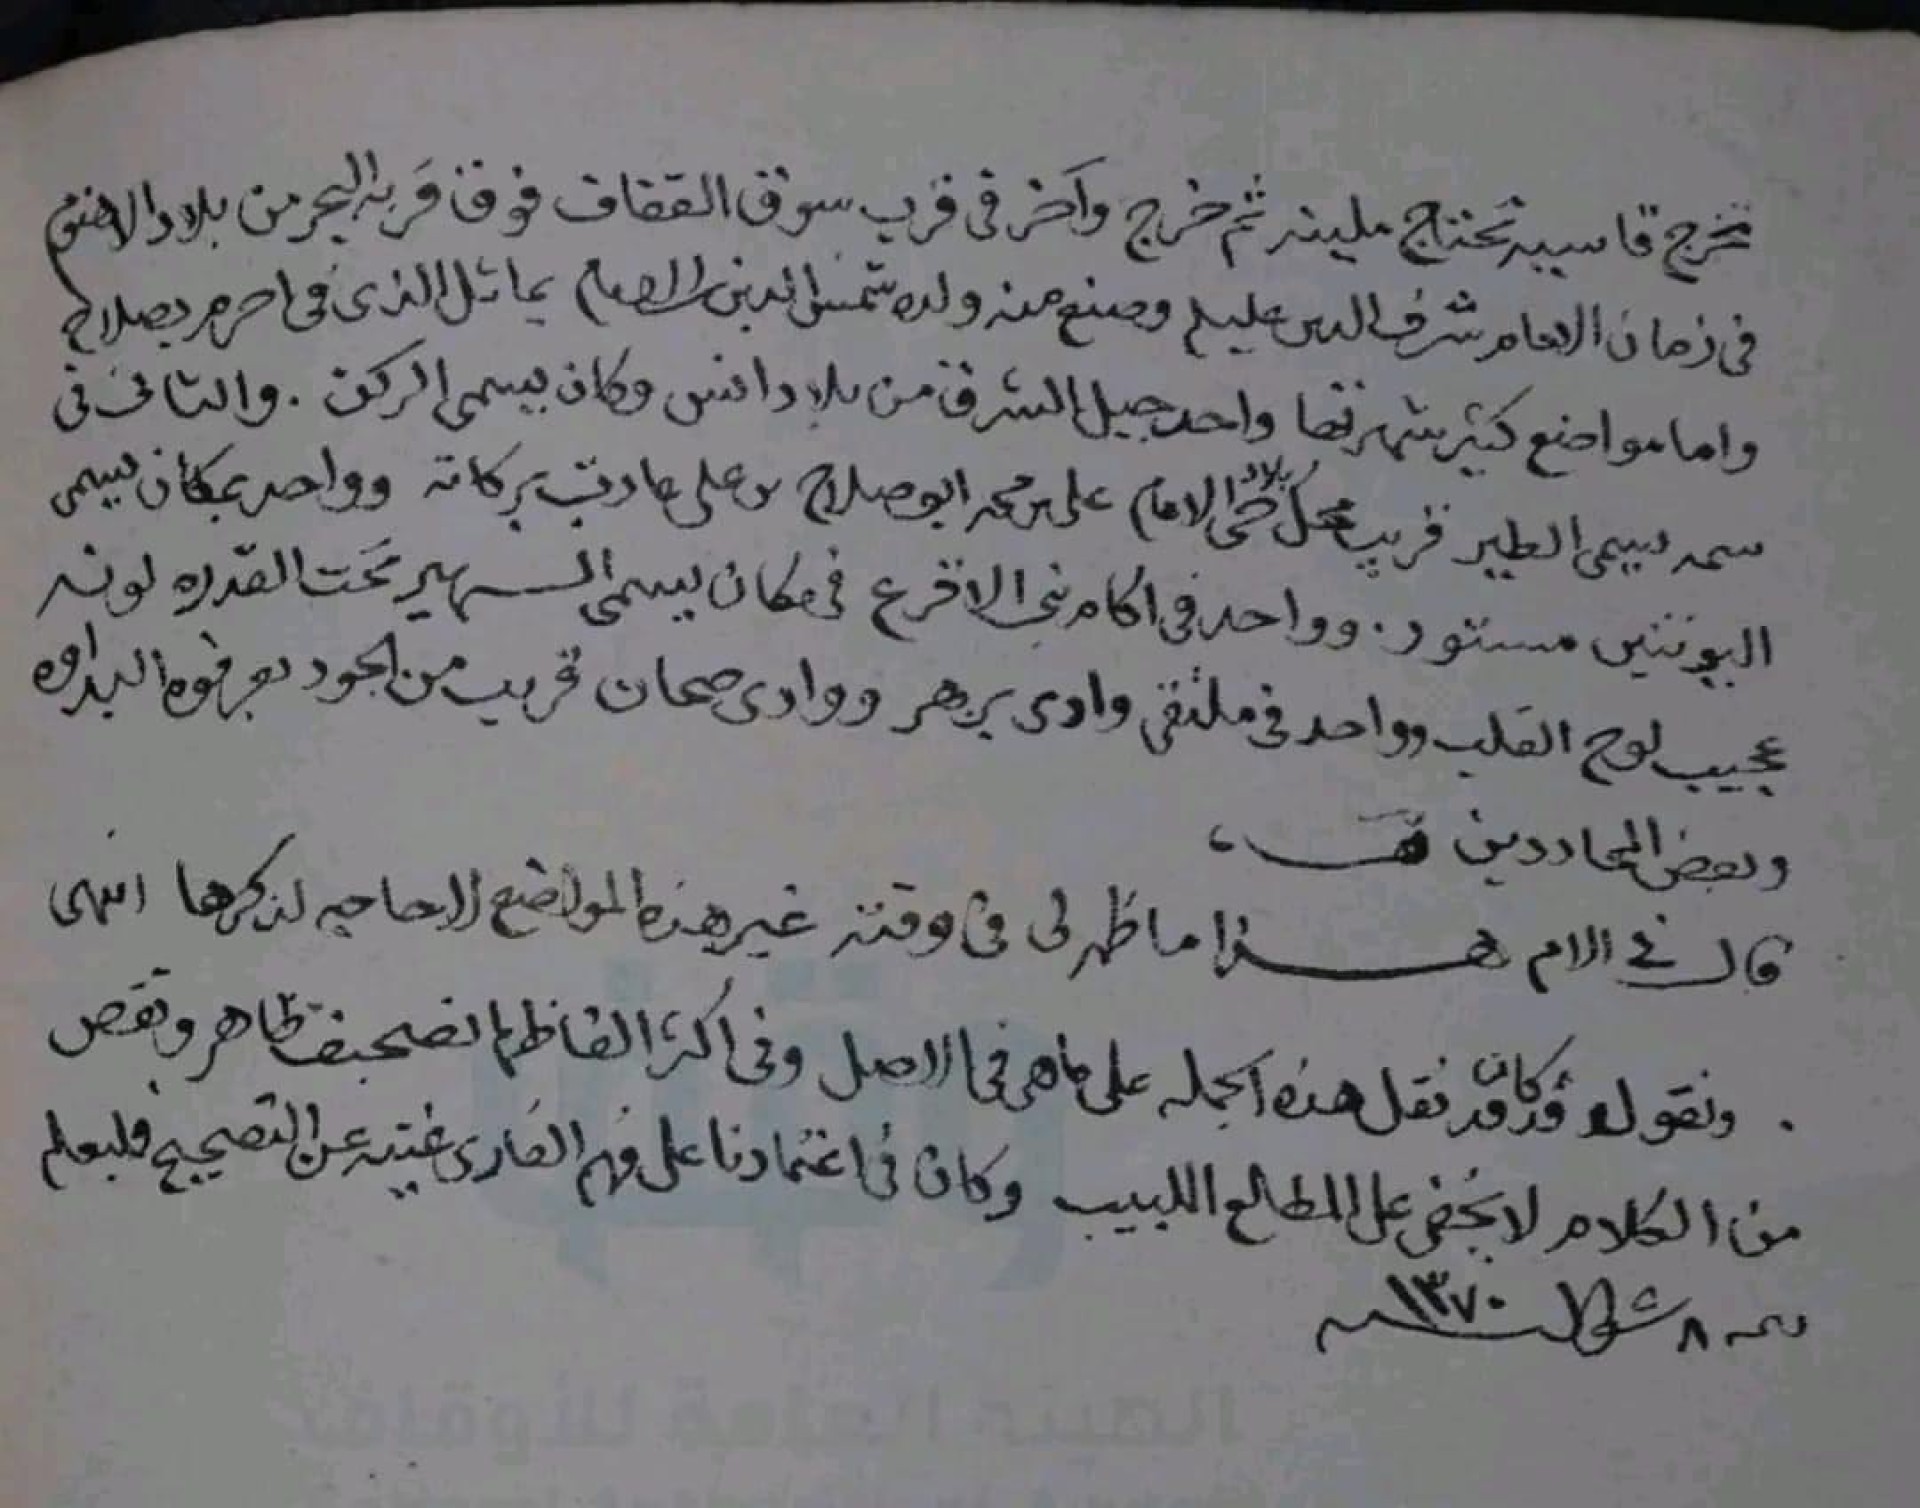 تخرج قاسيه تحتاج ملينه ثم خرج وآخر في قرب سوق القفاف فوق قريه البحر من بلاد الاهنوم
في زمان الامام شرف الدين عليلم وصنع منه ولده شمس الدين الامام يماثل الذي في احرم بصلاح
واما مواضع كثير شهرتها واحد جبل الشرق من بلاد انس وكان يسمى الركن . والثاني في
يسمى الطير قريب محل بلاد الامام علي بن محمد ابو صلاح بن علي عادت بركاته وواحد بمكان يسمى
مستور . وواحد في اكام بني الاقرع في مكان يسمى السهير تحت القدره لونه
عجيب لوح القلب وواحد في ملتقى وادي بربهر ووادي صحان قريب من الجود يعرفوه البداوه
وبعض الحدادين
قال في الام هذا ما ظهر لي في وقته غير هذه المواضع لا حاجه لذكرها انتهى
. ونقول قد كان نقل هذه الجمله على ماهي في الاصل وفي اكثر الفاظها تصحيف ظاهر ونقص
من الكلام لا يخفى على المطالع اللبيب وكان في اعتمادنا على فهم القارى غنيه عن التصحيح فليعلم
٨ شوال سنه ١٣٧٠
الهيئة العامة للأوقاف